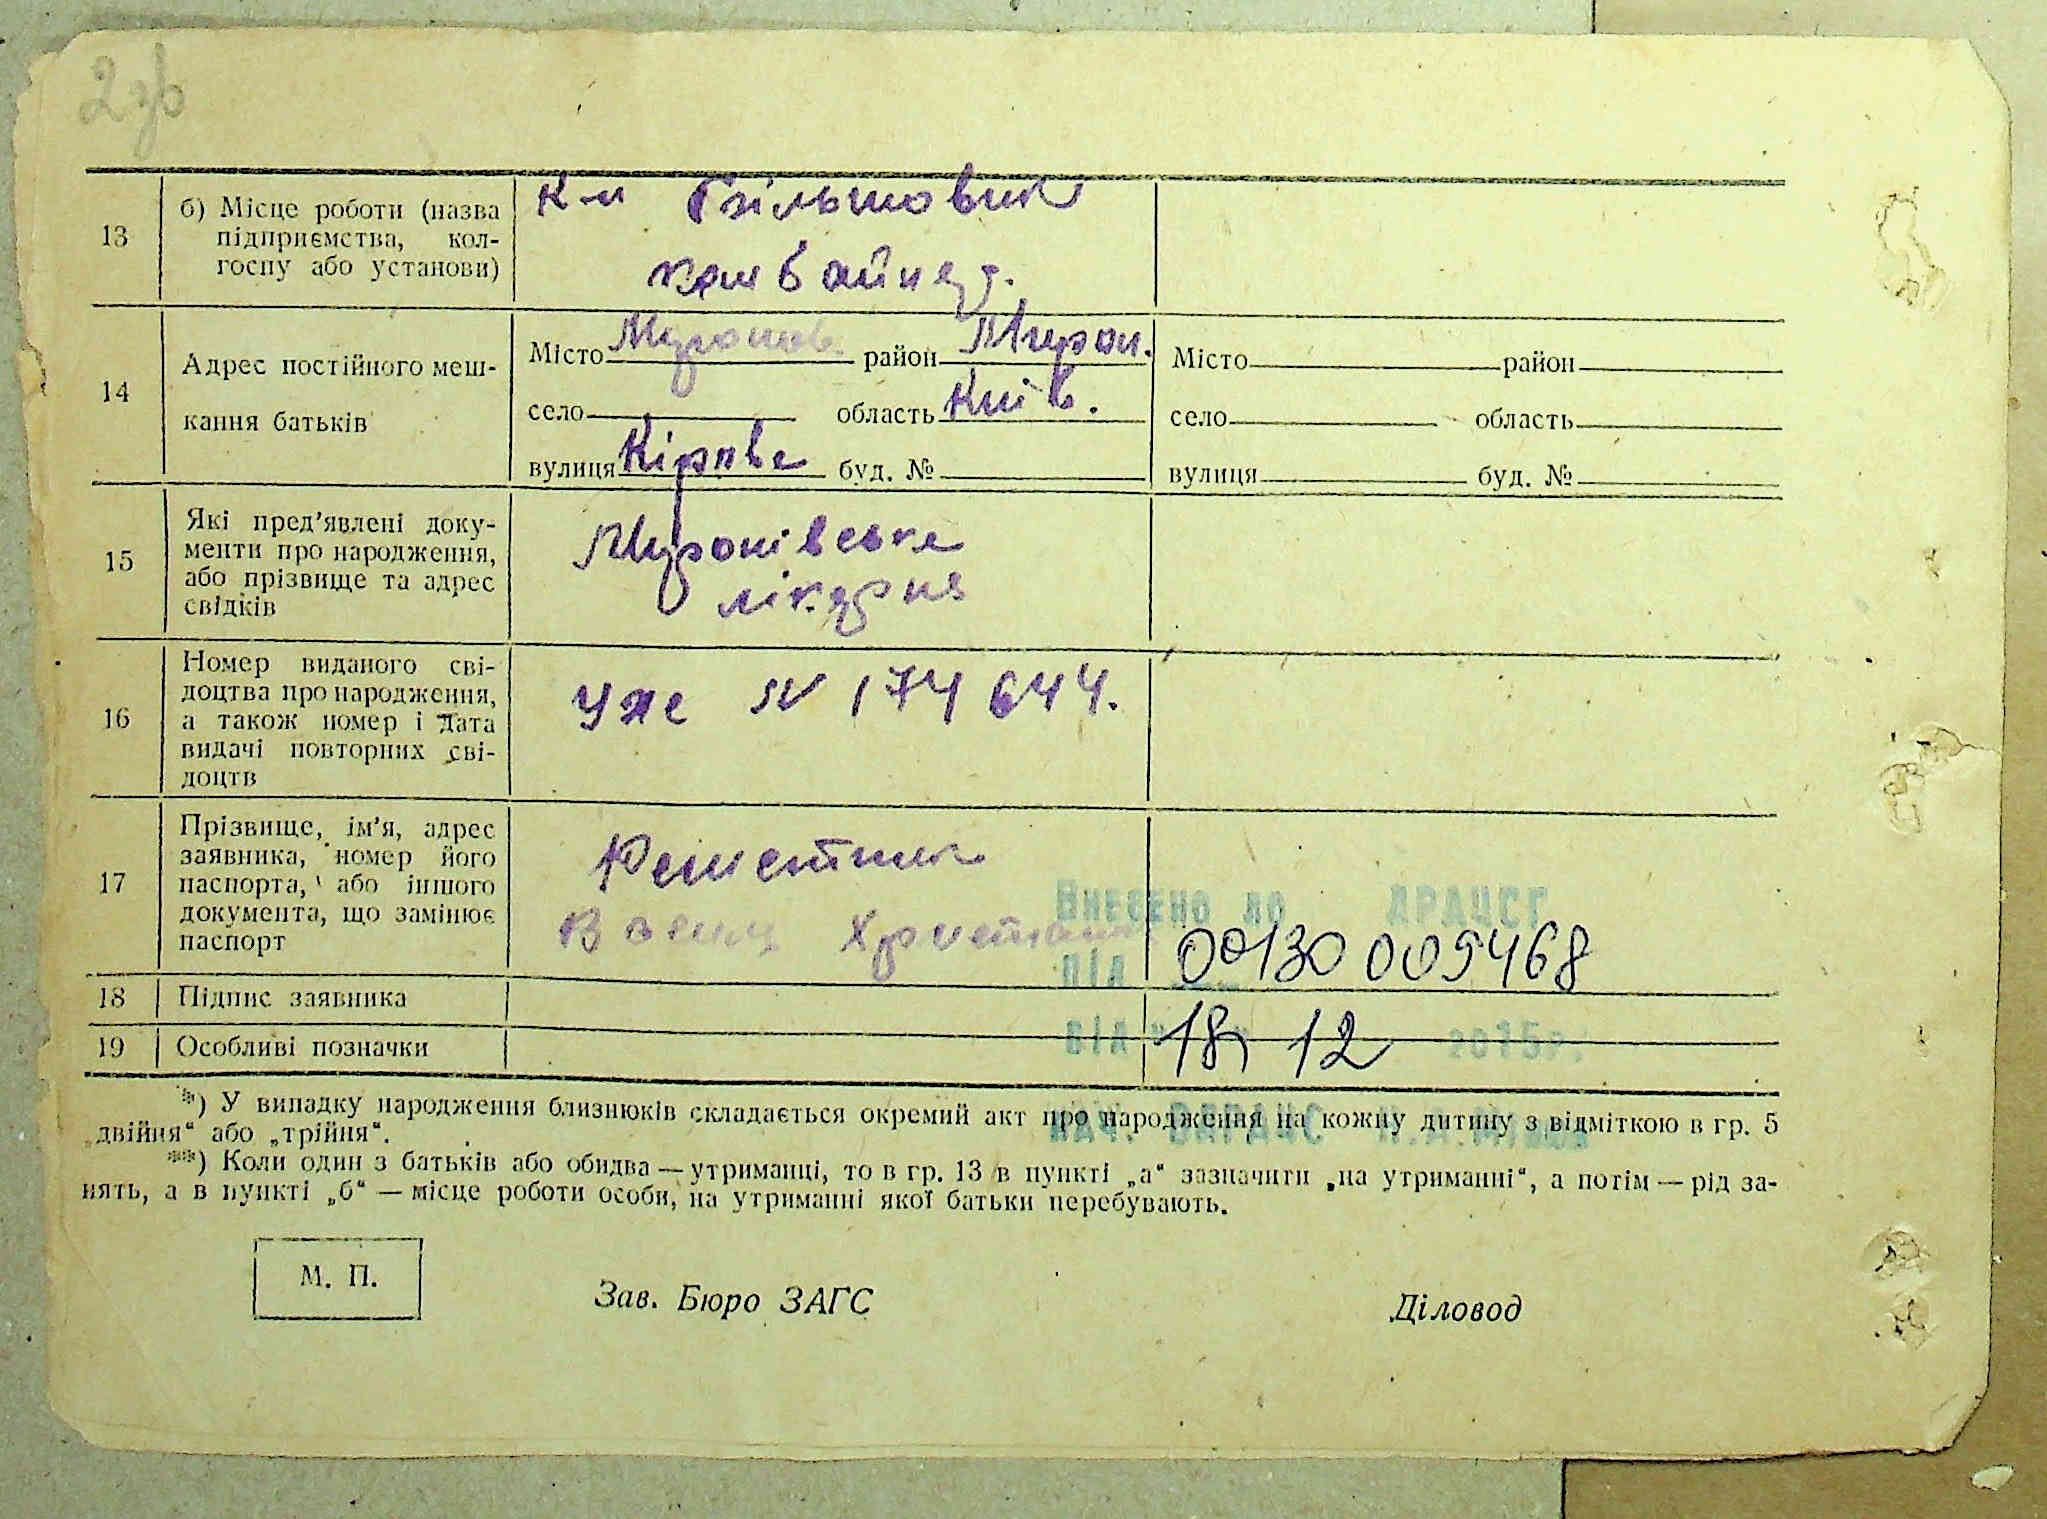 2зв
13
б) Місце роботи (назва
підприємства, кол-
госпу або установи)
к-п Більшовик
комбайнер.
14
Адрес постійного меш-
кання батьків
Місто Миронов. район Мирон.
село область Київ.
вулиця Кірова буд. №
Місто район
село область
вулиця буд. №
15
Які пред'явлені доку-
менти про народження,
або прізвище та адрес
свідків
Миронівська
лікарня
16
Номер виданого сві-
доцтва про народження,
а також номер і дата
видачі повторних сві-
доцтв
УЖЕ № 174644.
17
Прізвище, ім'я, адрес
заявника, номер його
паспорта, або іншого
документа, що замінює
паспорт
Внесено до ДРАЦСГ
під 00130 005468
18
Підпис заявника
від 18 12 2015р.
19
Особливі позначки
*) У випадку народження близнюків складається окремий акт про народження на кожну дитину з відміткою в гр. 5
„двійня“ або „трійня“.
**) Коли один з батьків або обидва — утриманці, то в гр. 13 в пункті „а“ зазначити „на утриманні“, а потім — рід за-
нять, а в пункті „б“ — місце роботи особи, на утриманні якої батьки перебувають.
М. П.
Зав. Бюро ЗАГС
Діловод